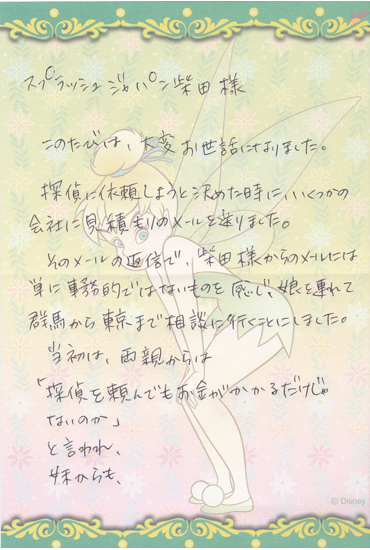 スプラッシュジャパン柴田様
このたびは、大変お世話になりました。
探偵に依頼しようと決めた時に、いくつかの
会社に見積もりのメールを送りました。
そのメールの返信で、柴田様からのメールには
単に事務的ではないものを感じ、娘を連れて
群馬から東京まで相談に行くことにしました。
当初は、両親からは
「探偵を頼んでもお金がかかるだけじゃ
ないのか」
と言われ、
妹からも、
© Disney